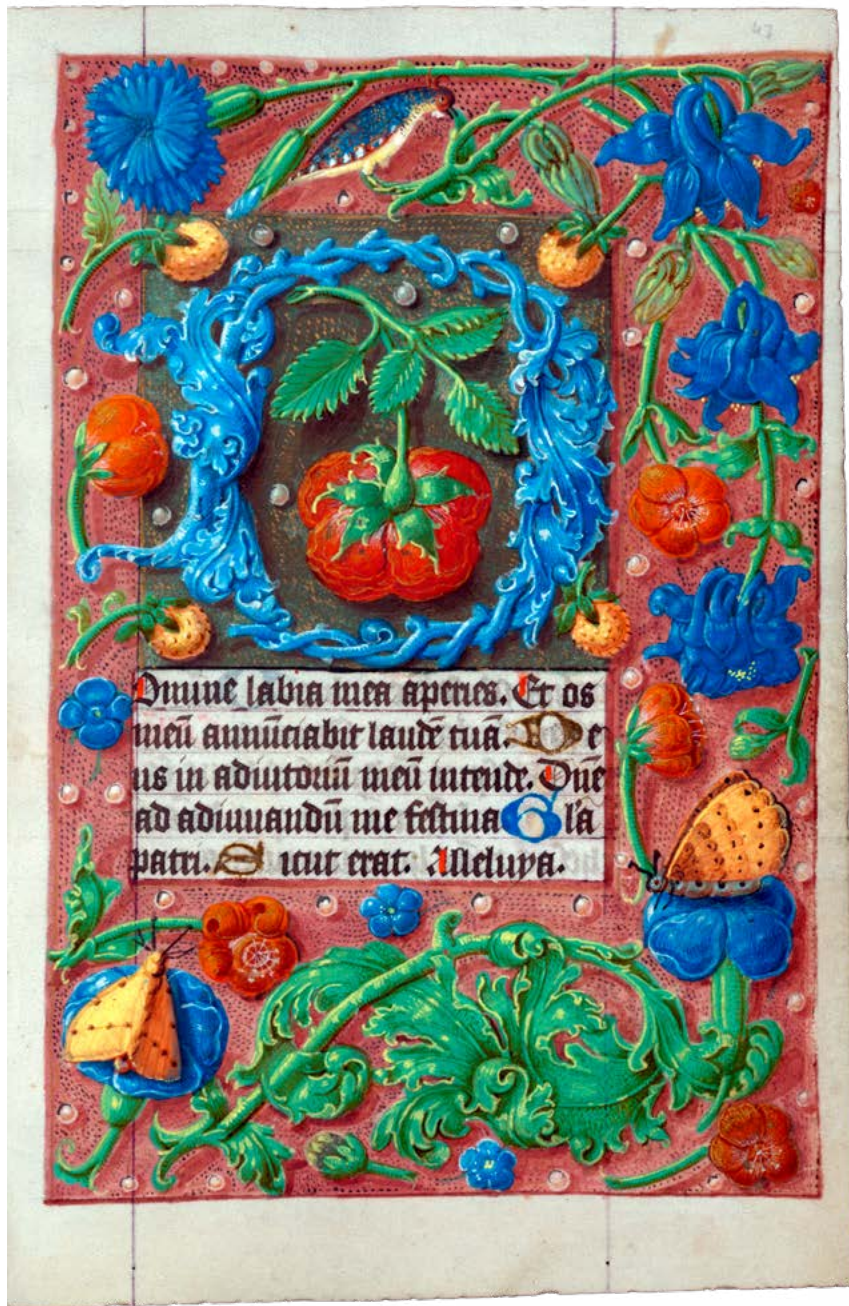 47
D
Domine labia mea aperies. Et os
meū annūciabit laudē tuā. De
us in adiutoriū meū intende. Dn̄e
ad adiuuandū me festina Gl'a
patri. Sicut erat. Alleluya.